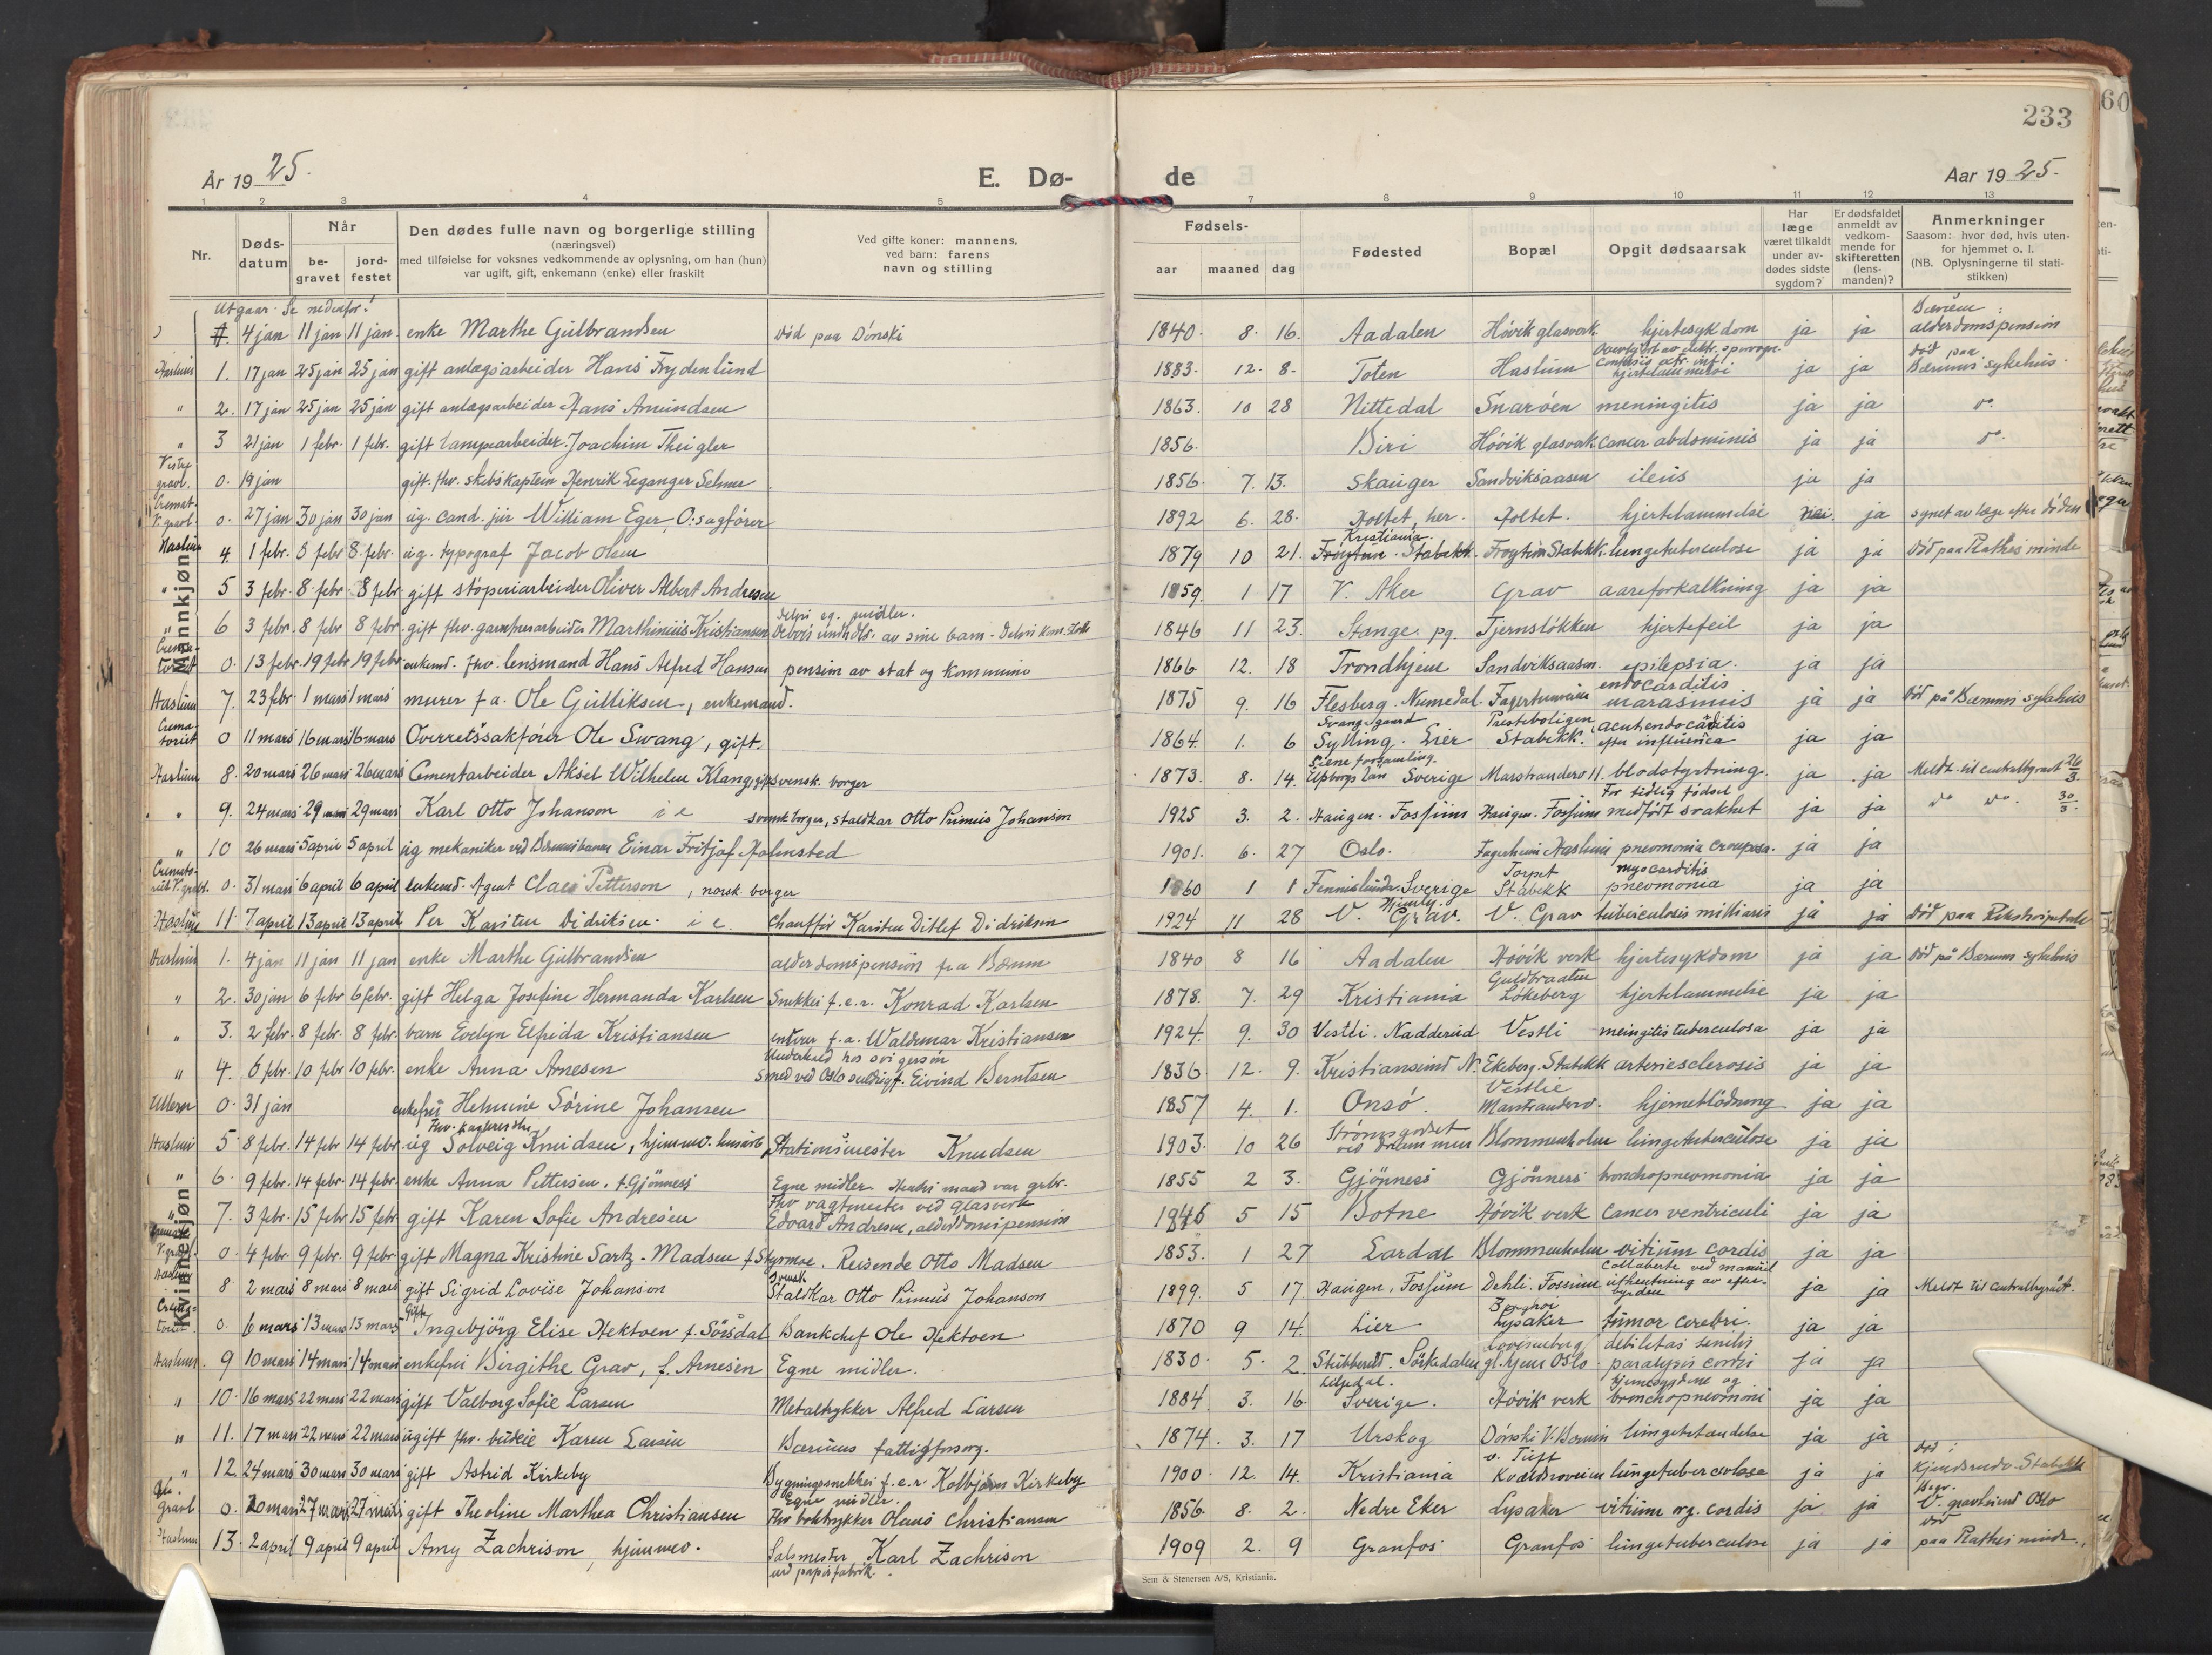 233
År 19 25.
E. Dø-
de
Aar 19 25.
1 2 3 4 5 7 8 9 10 11 12 13
Nr.
Døds-
datum
Når
be-
gravet
jord-
festet
Den dødes fulle navn og borgerlige stilling
(næringsvei)
med tilføielse for voksnes vedkommende av oplysning, om han (hun)
var ugift, gift, enkemann (enke) eller fraskilt
Ved gifte koner: mannens,
ved barn: farens
navn og stilling
Fødsels-
aar maaned dag
Fødested
Bopæl
Opgit dødsaarsak
Har
læge
været tilkaldt
under av-
dødes sidste
sygdom?
Er dødsfaldet
anmeldt av
vedkom-
mende for
skifteretten
(lens-
manden)?
Anmerkninger
Saasom: hvor død, hvis uten-
for hjemmet o. l.
(NB. Oplysningerne til stati-
stikken)
Mannkjøn
Utgaar. Se nedenfor!
4 jan 11 jan 11 jan. enke Marthe Gulbrandsen død paa Dønski 1840. 8. 16. Aadalen Høvik glasverk. hjertesykdom ja ja Bærum: alderdomspension
Haslum 1. 17 jan 25 jan 25 jan gift anlægsarbeider Hans Frydenlund 1883. 12. 8. Toten Haslum hjertelammelse ja ja død paa Bærums sykehus
" 2. 17 jan 25 jan 25 jan gift anlægsarbeider Hans Amundsen 1863. 10 28 Nittedal Snarøen meningitis ja ja do
" 3 21 jan 1 febr. 1 febr. gift lampearbeider Joachim Theigler 1856. Biri Høvik glasverk cancer abdominis ja ja do.
Vestre gravl. 0. 19 jan gift. fhv. skibskaptein Henrik Leganger Selmer 1856. 7. 13. Skauger Sandviksaasen ileus ja ja
Cremat. V. gravl. 0. 27 jan 30 jan 30 jan ug. cand. jur William Eger, O:sagfører 1892 6. 28. Holtet, her. Holtet. hjertelammelse nei. ja synet av læge efter døden
Haslum 4. 1 febr. 8 febr 8. febr. ug. typograf Jacob Olsen 1879 10 21. Kristiania. Frøytun Stabekk. lungetuberculose ja ja død paa Rathes minde
" 5 3 febr. 8 febr 8 febr gift støperiarbeider Oliver Albert Andresen 1859. 1 17 V. Aker Grav aareforkalkning ja ja
" 6 3 febr. 8 febr 8 febr. gift fhv. garnfarverarbeider Marthinius Kristiansen Delvis eg. midler. Delvis underh. av sine barn - 1846 11 23. Stange pg. Tjernsløkken hjertefeil ja ja
Crema-toriet 0. 13 febr. 19 febr 19 febr enkemd. fhv. lensmand Hans Alfred Hansen pension av stat og kommune 1866 12. 18 Trondhjem Sandviksaasen. epilepsia. ja ja
Haslum 7. 23 febr. 1 mars 1 mars murer f.a. Ole Gulliksen, enkemand. 1875 9. 16 Flesberg. Numedal. Fagertunveien endocarditis marasmus ja ja død på Bærums sykehus
Crema-toriet 0 11 mars 16 mars 16 mars Overretssakfører Ole Swang, gift. 1864. 1. 6 Svangsgaard Sylling. Lier Presteboligen Stabekk. acut endocarditis efter influenca ja ja
Haslum 8. 20 mars 26 mars 26 mars Cementarbeider Aksel Wilhelm Klang, gift svensk borger 1873. 8. 14. Sverige Marstranderv 11. blodstyrtning. ja ja Meldt til centralbyraaet 26/3
" 9. 24 mars 29 mars 29 mars Karl Otto Johanson i e svensk borger, staldkar Otto Primus Johanson 1925 3. 2. Haugen. Fossum Haugen. Fossum For tidlig fødsel medfødt svakhet ja ja do do. 30/3.
" 10 26 mars 5 april 5 april ug mekaniker ved Bærumsbanen Einar Fritjof Holmsted 1901. 6. 27 Oslo. Fagerheim Haslum pneomonia crouposa. ja ja
0. 31 mars 6 april 6 april enkemd. Agent Claes Petterson, norsk borger 1860 1 1 Sverige Torpet Stabekk myocarditis pneomonia ja ja
Haslum 11 7 april 13 april 13 april Per Karsten Didriksen. i e. Chauffør Karsten Ditlef Didriksen 1924 11 28 V. Grav. V. Grav tuberculosis milliaris ja ja død paa Rikshospitalet
Kvinnekjøn
Haslum 1. 4 jan 11 jan 11 jan enke Marthe Gulbrandsen alderdomspension fra Bærum 1840 8 16 Aadalen Høvik verk hjertesykdom ja ja død på Bærums sykehus
" 2. 30 jan 6 febr 6 febr. gift Helga Josefine Hermanda Karlsen Snekker f.e.r. Konrad Karlsen 1878. 7. 29 Kristiania Guldbraaten Løkeberg hjertelammelse ja ja
" 3. 2 febr. 8 febr. 8 febr. barn Evelyn Elfrida Kristiansen f.a. Waldemar Kristiansen 1924. 9. 30 Vestli. Nadderud Vestli meingitis tuberculosa ja ja
" 4. 6 febr. 10 febr 10 febr. enke Anna Arnesen Underhold hos svigersøn smed ved Oslo Eivind Berntsen 1836. 12. 9. Kristiansund N. Ekeberg. Stabekk arteriesclerosis ja ja
Ullern 0. 31 jan enkefru Helmine Sørine Johansen 1857 4. 1. Onsø. Vestlie Marstranderv. hjerneblødning ja ja
Haslum 5. 8 febr. 14 febr 14 febr. ug Solveig Knudsen, hjemmev. Stationsmester Knudsen 1903. 10 26 Strømsgodset ved Drammen Blommenholm lungetuberculose ja ja
" 6. 9 febr. 14 febr. 14 febr. enke Anna Pettersen. f. Gjønnes Egne midler. Hendes mand var grbr. 1855 2 3. Gjønnes Gjønnes bronchopneomonia ja ja
" 7. 3 febr. 15 febr 15 febr gift Karen Sofie Andresen Fhv vagtmester ved glasverk Edvard Andresen, alderdomspension 1846 5 15 Botne Høvik verk cancer ventriculi ja ja
V. gravl. 0. 4 febr. 9 febr. 9 febr. gift Magna Kristine Sartz-Madsen f. Styrmoe. Reisende Otto Madsen 1853. 1 27 Lardal Blommenholm vitium cordis ja ja
Haslum 8 2 mars 8 mars 8 mars gift Sigrid Lovise Johanson svensk Staldkar Otto Primus Johanson 1899. 5 17. Haugen, Fossum Dehli. Fossum Collaberte ved manuel uthentning av efterbyrden ja ja Meldt til Centralbyraaet.
Crema-toriet 0. 6 mars 13 mars 13 mars Gift Ingebjørg Elise Hektoen f. Sørsdal Bankchef Ole Hektoen 1870 9 14. Lier Lysaker tumor cerebri. ja ja
Haslum. 9 10 mars 14 mars 14 mars enkefru Birgithe Grav, f. Arnesen Egne midler. 1830. 5. 2. Stubberud. Sørkedalen Lovisenberg gl. hjem Oslo debilitas senilis paralysis cordis ja ja
" 10. 16 mars 22 mars 22 mars gift Valborg Sofie Larsen Metaltrykker Alfred Larsen 1884. 3. 16. Sverige. Høvik verk bronchopneomoni ja ja
" 11. 17 mars 22 mars 22 mars ugift fhv. budeie Karen Larsen Bærums fattigforsorg. 1874. 3. 17 Urskog Dønski V. Bærum lungebetændelse ja ja
" 12. 24 mars 30 mars 30 mars gift Astrid Kirkeby Bygningssnekker f.e.r Kolbjørn Kirkeby 1900. 12. 14. Kristiania lungetuberculose ja ja død: Stabekk
gravl. 0. 20 mars 27 mars 27 mars gift Theoline Marthea Christiansen Egne midler. Fhv boktrykker Olaus Christiansen 1856. 8. 2. Nedre Eker Lysaker vitium org. cordis ja ja Begr. V. gravlund Oslo
Haslum 13. 2 april 9 april 9 april Amy Zachrison, hjemmev. Salsmester Karl Zachrison ved papirfabrik. 1909 2. 9 Granfos Granfos lungetuberculose ja ja død paa Rathes minde.
Sem & Stenersen A/S, Kristiania.
60